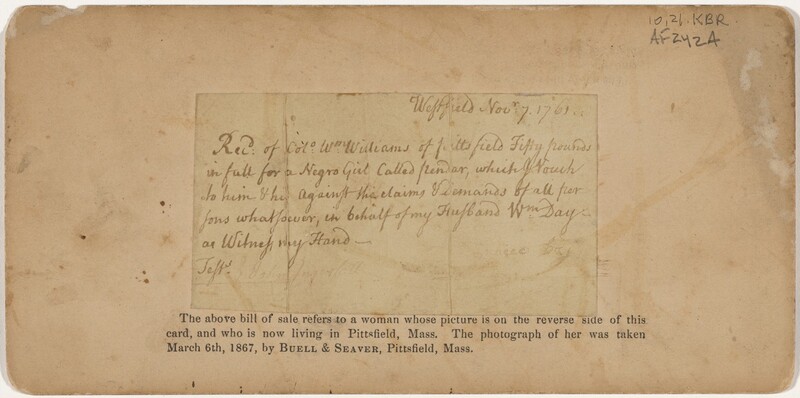 10,21.KBR.
AF242A
Westfield Novr. 7. 1761
Recd. of Colo. Wm Williams of pittsfield Fifty pounds
in full for a Negro Girl Called pendar, which I Vouch
to him & his Against the claims & demands of all per
sons whatsoever, in behalf of my Husband Wm Day
as Witness my Hand —
Test.
The above bill of sale refers to a woman whose picture is on the reverse side of this
card, and who is now living in Pittsfield, Mass. The photograph of her was taken
March 6th, 1867, by BUELL & SEAVER, Pittsfield, Mass.